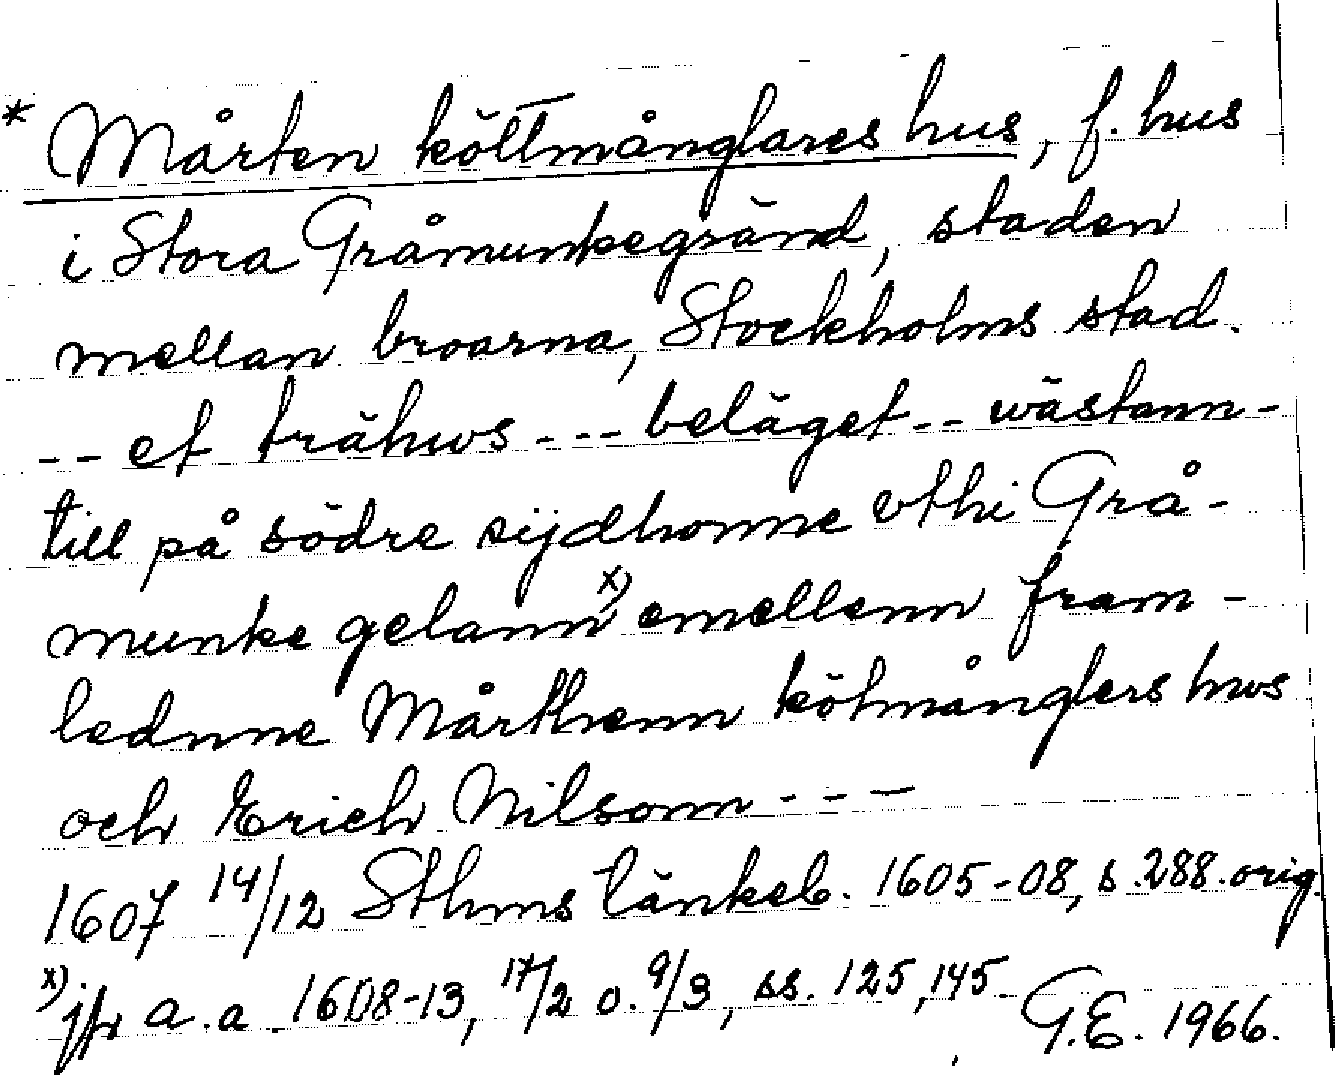 * Mårten köttmånglares hus, f. hus
i Stora Gråmunkegränd, staden
mellan broarna, Stockholms stad.
-- et trähws --- beläget -- wästann-
till på södre sijdhonne vthi Grå-
munke gelann x) emellenn fram-
lednne Mårthenn kötmånglers hws
och Erich Nilsonn ---
1607 14/12 Sthms tänkeb. 1605-08, s. 288. orig.
x) jfr a. a. 1608-13, 17/2 o. 9/3, ss. 125, 145
G.E. 1966.